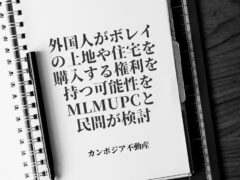 外国人がボレイ
の土地や住宅を
購入する権利を
持つ可能性を
MLMUPCと
民間が検討
カンボジア不動産